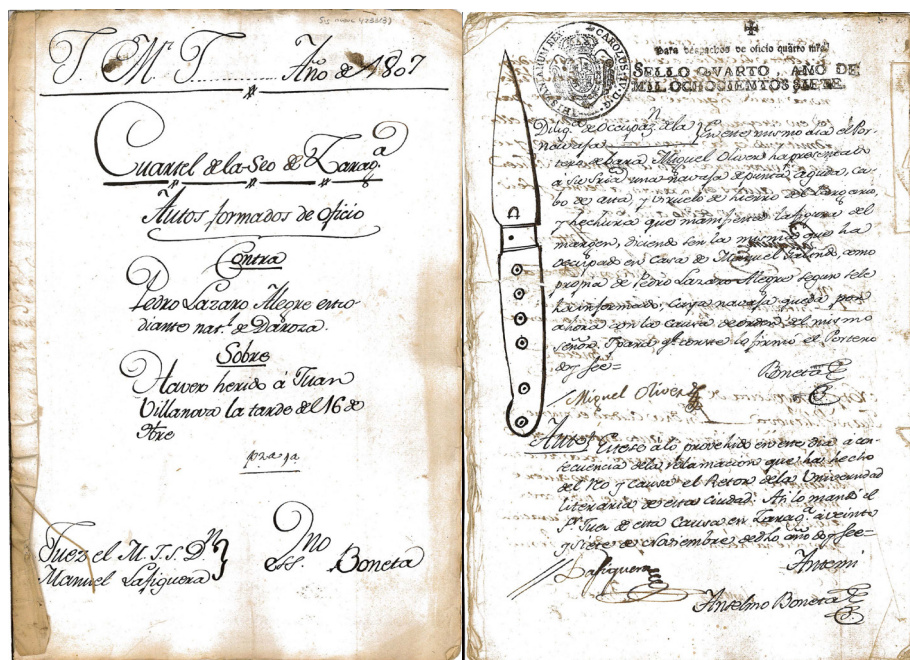 J. M. J. Año de 1807
Cuartel de la Seo de Zarag.a
Autos formados de oficio
Contra
Pedro Lazaro Alegre estu
diante nat.l de Daroza
Sobre
Haver herido á Juan
Villanova la tarde del 16 de
Juez el M. I. S. D.n
Manuel Lafiguera
SS.no Boneta
CAROLUS IV D. G. HISPANIARUM REX
Para despachos de oficio quatro mrs.
SELLO QVARTO, AÑO DE
MIL OCHOCIENTOS SIETE.
Dilig.n de Occupaz.n de la
navaja En este mismo dia el Por-
tero de bara Miguel Oliver ha presentado
á Su Sria una navaja de punta aguda, ca-
bo de asta, y viruelo de hierro del largario,
y hechura que manifiesta la figura del
margen, diciendo ser la misma que ha
occupado en casa de Manuel Galindo, como
propia de Pedro Lazaro Alegre segun se le
ha informado, cuya navaja queda por
ahora con la causa de orden del mismo
señor. Y para q.e conste lo firmó el Portero
doy feé=
Boneta
Miguel Oliver
Auto Estese a lo provehido en este dia a con-
secuencia de la reclamacion que ha hecho
del Reo y causa el Retor de la Universidad
literaria de esta Ciudad. Asi lo mandó el
S.r Juez de esta Causa en Zarag.a a veinte
y siete de Noviembre de dho año doy feé=
Lafiguera
Antemi
Anselmo Boneta